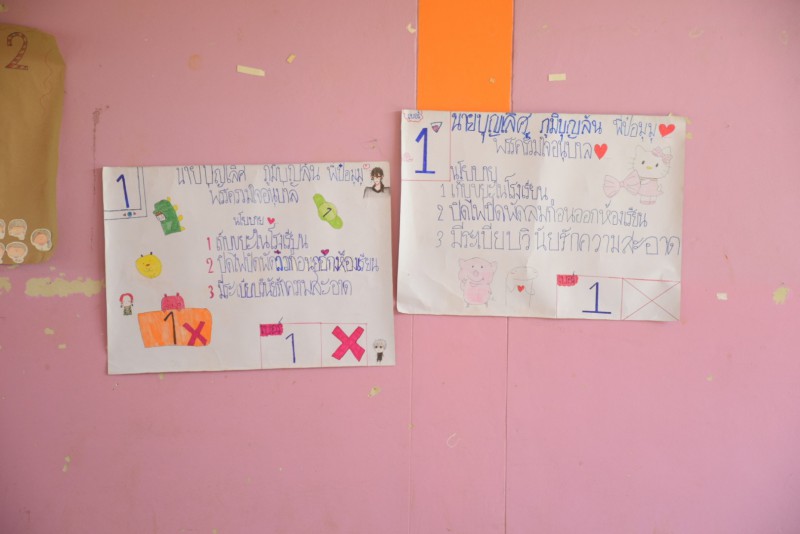 2
1
นายบุญเลิศ ภูมิบุญลัน พี่ป๋อมุมู
พรรครวมใจอนุบาล
นโยบาย
1 เก็บขยะในโรงเรียน
2 ปิดไฟปิดพัดลมก่อนออกห้องเรียน
3 มีระเบียบวินัยรักความสะอาด
1
1
เบอร์
1
1
เบอร์
1
นายบุญเลิศ ภูมิบุญลัน พี่ป๋อมุมู
พรรครวมใจอนุบาล
นโยบาย
1 เก็บขยะในโรงเรียน
2 ปิดไฟปิดพัดลมก่อนออกห้องเรียน
3 มีระเบียบวินัยรักความสะอาด
เบอร์
1